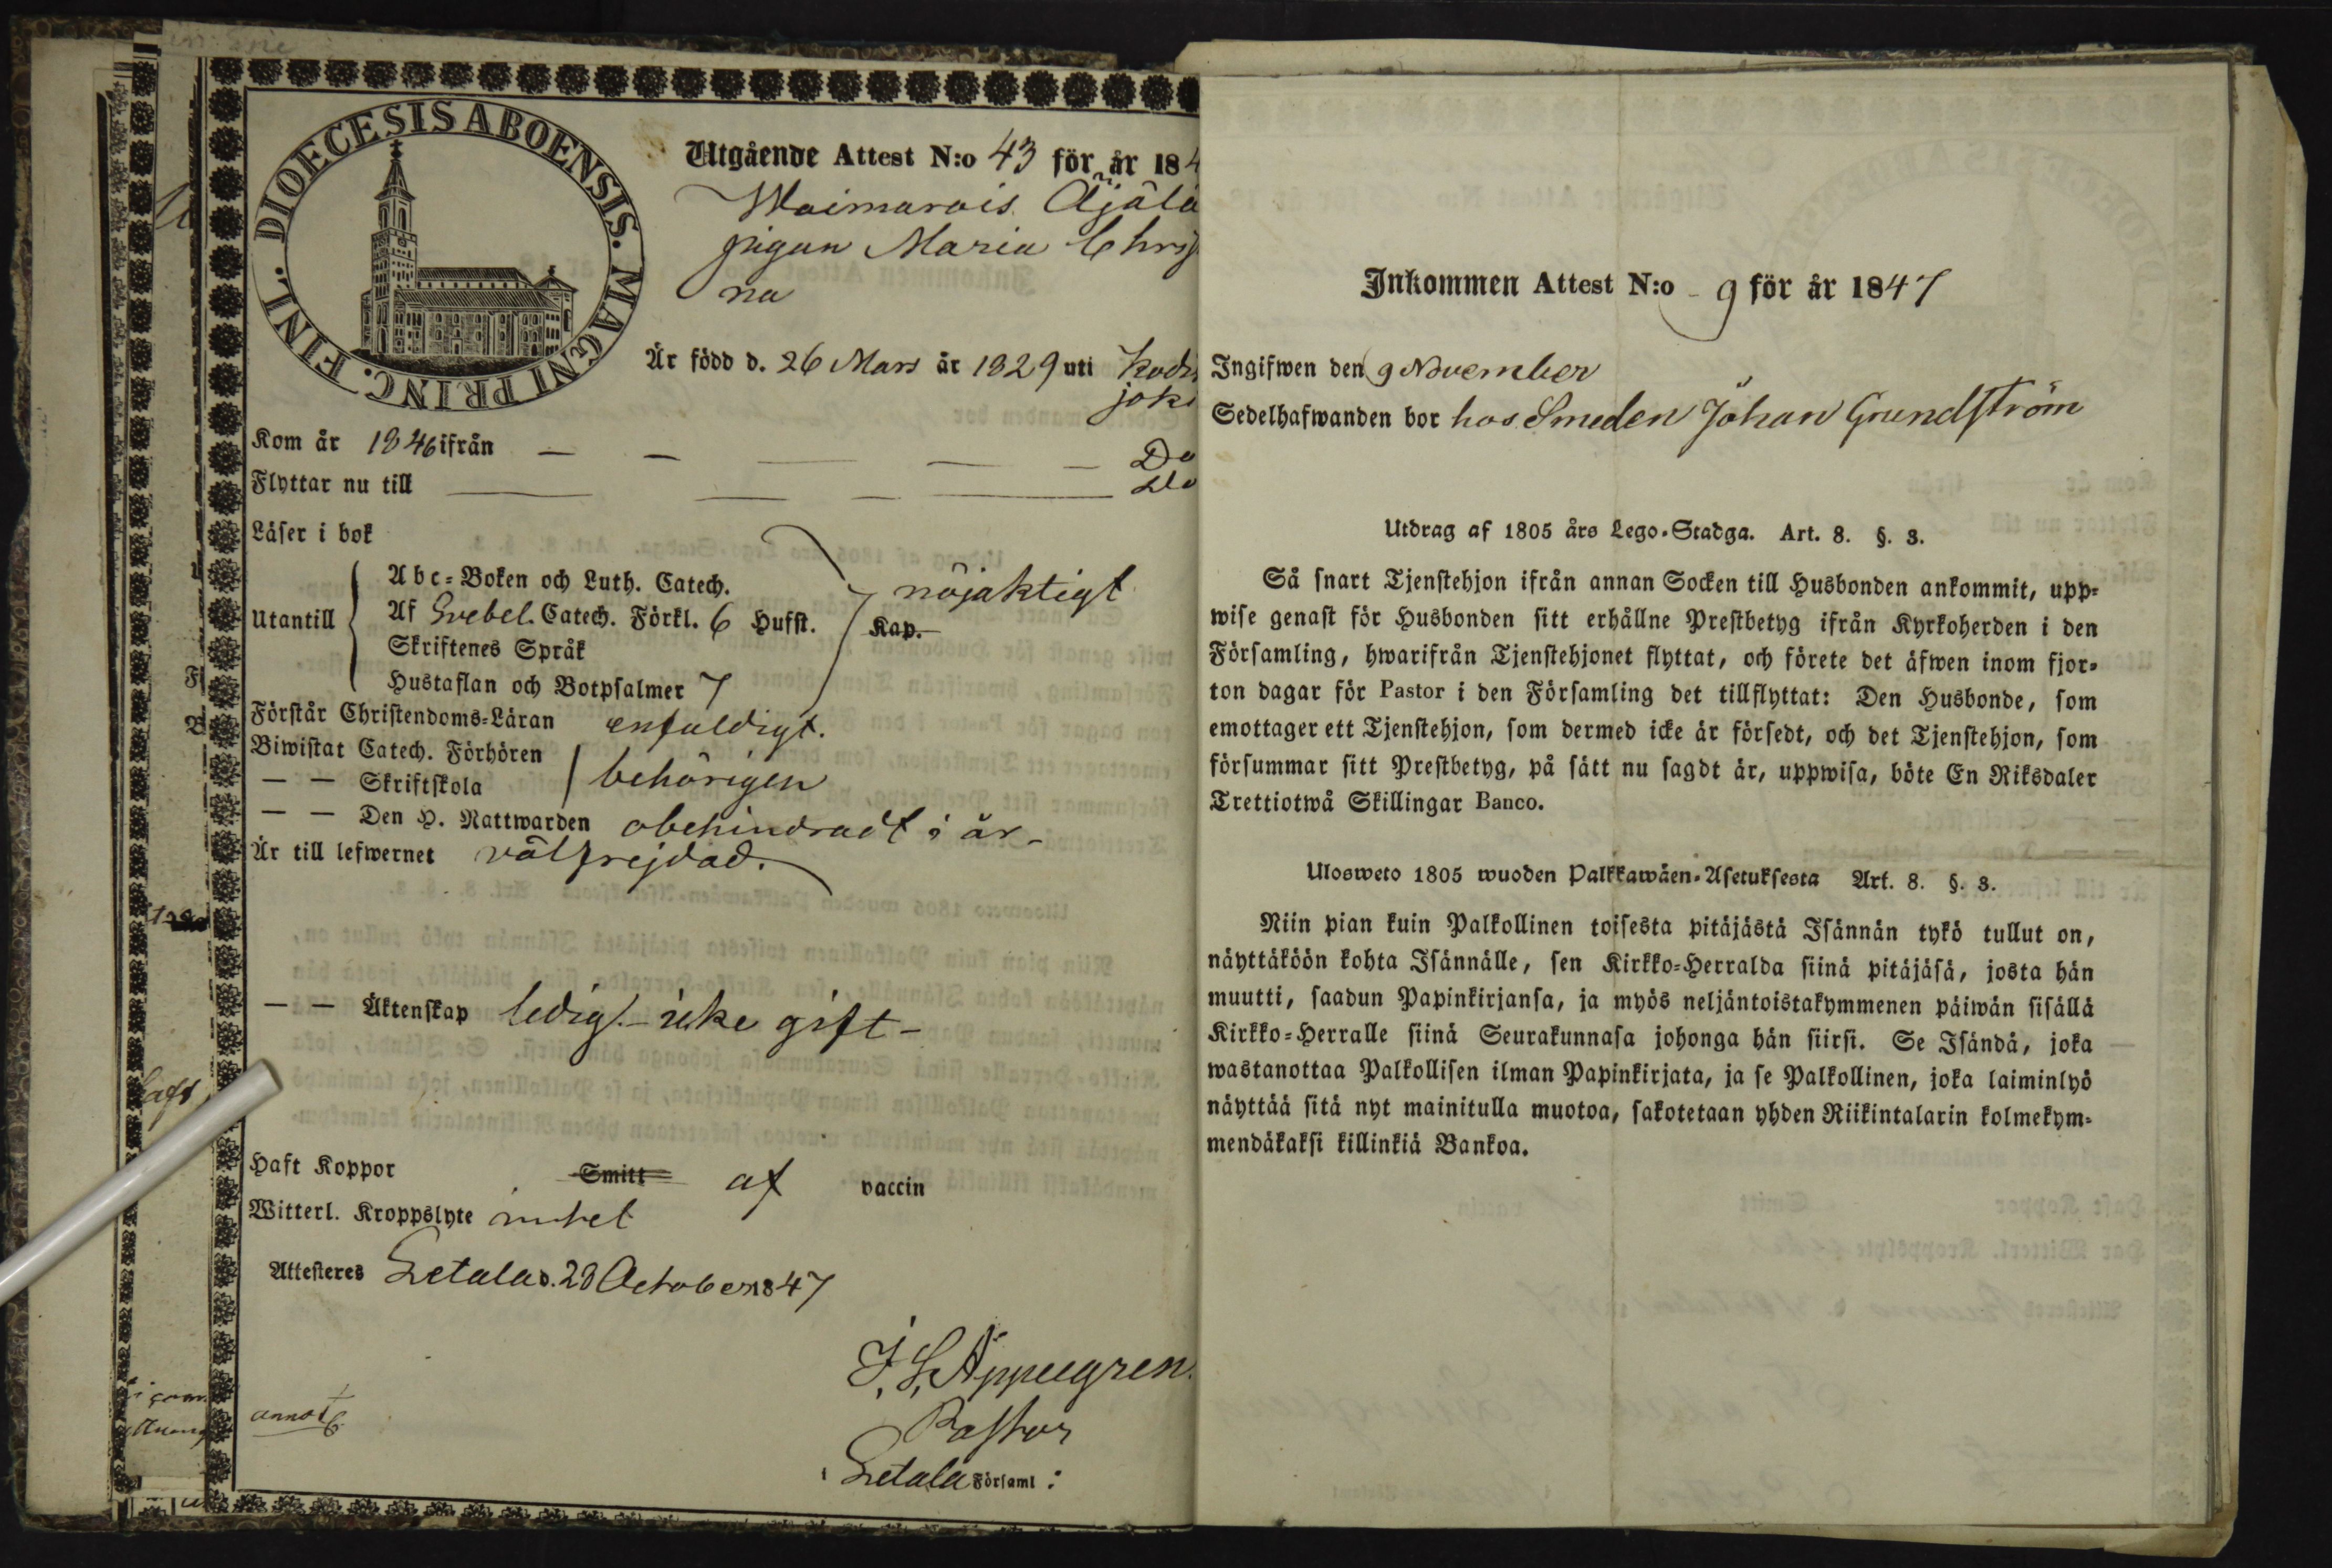 DIOECESIS ABOENSIS. MAGNI PRINC. FINL.
Utgående Attest N:o 43 för år 184
Waimarois Äjälä
pigan Maria Chris
na
Är född d. 26 Mars år 1829 uti Kodis
joki
Kom år 1846 ifrån — — — — — Do
Flyttar nu till — — — — Do
Läser i bok
Abc-Boken och Luth. Catech.
nöjaktigt
Utantill
Af Svebel. Catech. Förkl. 6 Hufst. Kap.
Skriftenes Språk
Hustaflan och Botpsalmer 7
Förstår Christendoms-Läran enfaldigt.
Biwistat Catech. Förhören
— — Skriftskola behörigen
— — Den H. Nattwarden obehindradt i år
Är till lefwernet välfrejdad.
— — Äktenskap ledig - icke gift -
Haft Koppor Smitt af vaccin
Witterl. Kroppslyte intet
Attesteres Letala d. 28 October 1847
J. L. Appelgren.
Pastor
i Letala Församl:
annot
Inkommen Attest N:o 9 för år 1847
Ingifwen den 9 November
Sedelhafwanden bor hos Smeden Johan Grundström
Utdrag af 1805 års Lego-Stadga. Art. 8. §. 3.
Så snart Tjenstehjon ifrån annan Socken till Husbonden ankommit, upp-
wise genast för Husbonden sitt erhållne Prestbetyg ifrån Kyrkoherden i den
Församling, hwarifrån Tjenstehjonet flyttat, och förete det äfwen inom fjor-
ton dagar för Pastor i den Församling det tillflyttat: Den Husbonde, som
emottager ett Tjenstehjon, som dermed icke är försedt, och det Tjenstehjon, som
försummar sitt Prestbetyg, på sätt nu sagdt är, uppwisa, böte En Riksdaler
Trettiotwå Skillingar Banco.
Ulosweto 1805 wuoden Palkkawäen-Asetuksesta Art. 8. §. 3.
Niin pian kuin Palkollinen toisesta pitäjästä Isännän tykö tullut on,
näyttäköön kohta Isännälle, sen Kirkko-Herralda siinä pitäjäsä, josta hän
muutti, saadun Papinkirjansa, ja myös neljäntoistakymmenen päiwän sisällä
Kirkko-Herralle siinä Seurakunnasa johonga hän siirsi. Se Isändä, joka
wastanottaa Palkollisen ilman Papinkirjata, ja se Palkollinen, joka laiminlyö
näyttää sitä nyt mainitulla muotoa, sakotetaan yhden Riikintalarin kolmekym-
mendäkaksi killinkiä Bankoa.